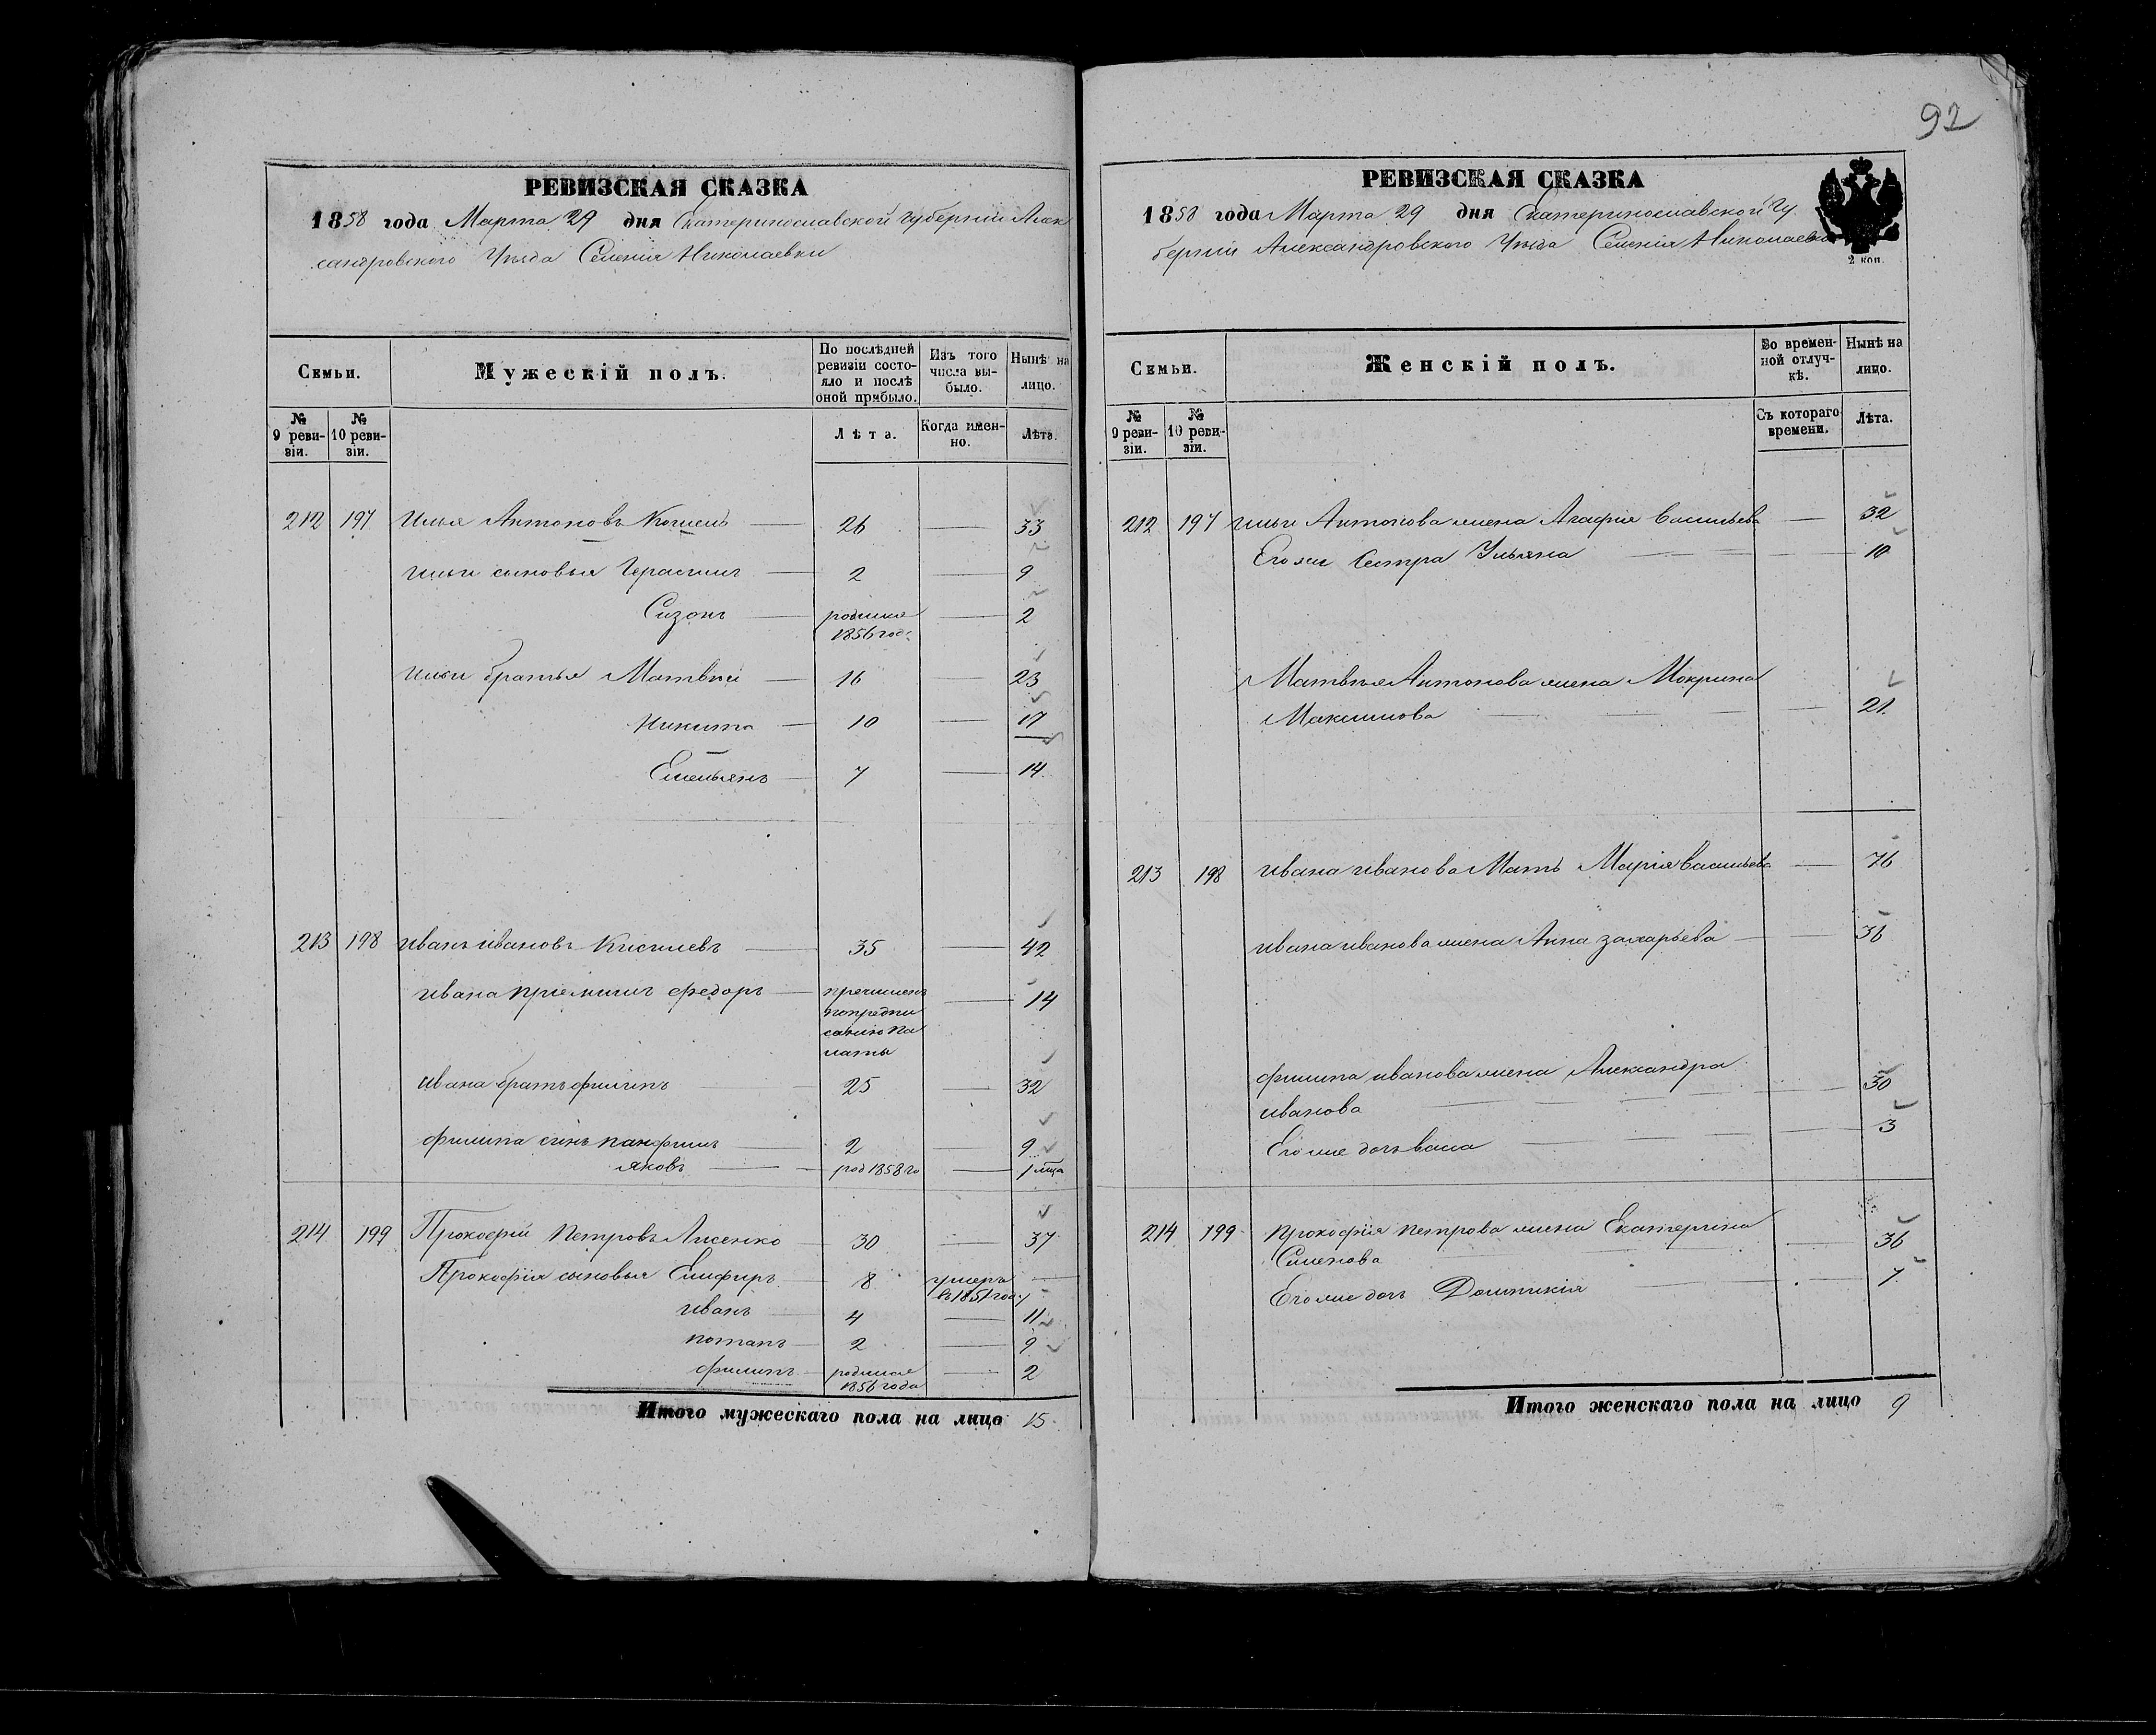 92
РЕВИЗСКАЯ СКАЗКА
1858 года Марта 29 дня Екатеринославской губерніи Алек
сандровского Уѣзда Селенія Николаевки
Семьи.
Мужескій полъ.
По послѣдней ревизіи состояло и послѣ оной прибыло.
Изъ того числа выбыло.
Нынѣ на лицо.
№ 9 ревизіи.
№ 10 ревизіи.
Лѣта.
Когда именно.
Лѣта.
212 197 Илья Антоновъ 26 33
Ильи сыновья Герасимъ 2 9
Сизонъ родился 1856 год. 2
Ильи братья Матвѣй 16 23
Никита 10 17
Емельянъ 7 14
213 198 Иванъ Ивановъ Киселевъ 35 42
Ивана пріемышъ Федоръ причисленъ по предписанію Палаты 14
Ивана братъ Филипъ 25 32
Филипа сынъ Панфилъ 2 9
Яковъ род 1858 го 1 мца
214 199 Прокофій Петровъ Лисенко 30 37
Прокофія сыновья 8 умеръ въ 1851 году
Иванъ 4 11
Потапъ 2 9
Филипъ родился 1856 года 2
Итого мужескаго пола на лицо 15
РЕВИЗСКАЯ СКАЗКА
1858 года Марта 29 дня Екатеринославской Гу
берніи Александровского Уѣзда Селенія Николаевки
2 коп.
Семьи.
Женскій полъ.
Во временной отлучкѣ.
Нынѣ на лицо.
№ 9 ревизіи.
№ 10 ревизіи.
Съ котораго времени.
Лѣта.
212 197 Ильи Антонова жена Агафія Васильева 32
Его же сестра Ульяна 10
Матвѣя Антонова жена Мокрина
Максимова 21
213 198 Ивана Иванова Мать Марія Васильева 76
Ивана Иванова жена Анна Захарьева 36
Филипа Иванова жена Александра
Иванова 30
Его же дочь Васа 3
214 199 Прокофія Петрова жена Екатерина
Семенова 36
Его же дочь Домникія 7
Итого женскаго пола на лицо 9